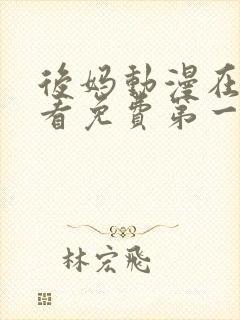 後妈動漫在
看免費第一
林宏飛